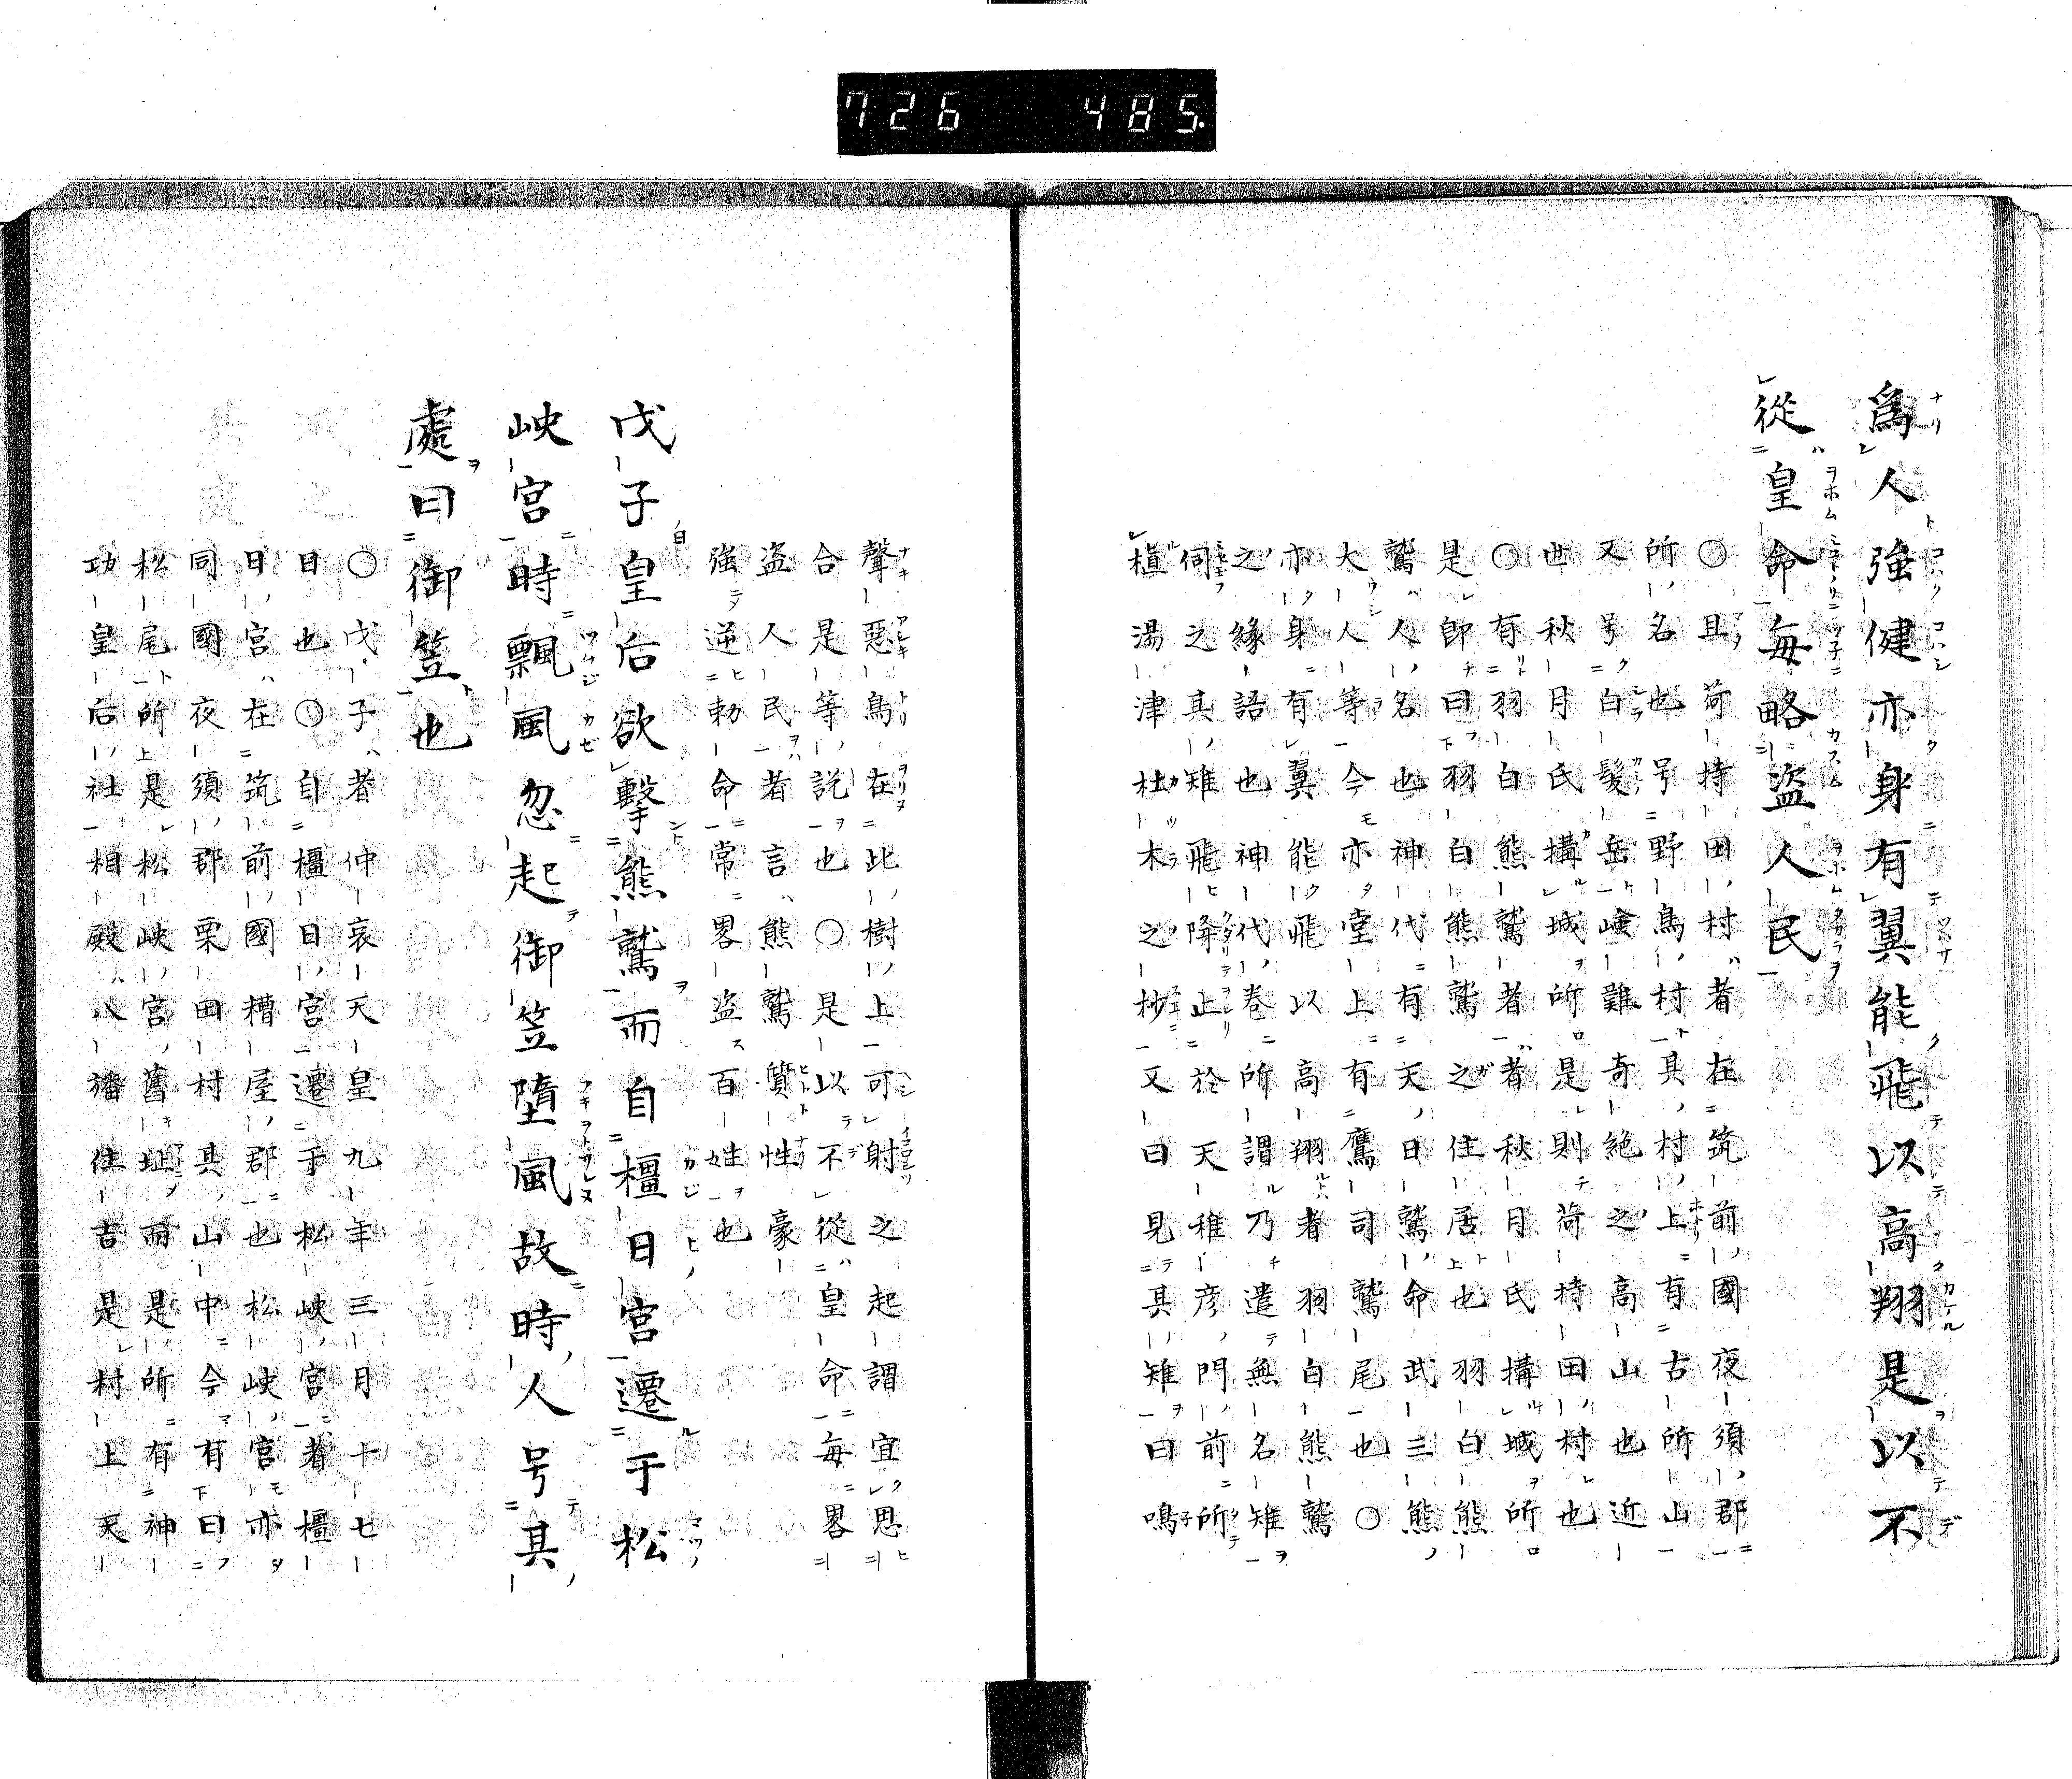 726 485.
爲人強健亦身有翼能飛以高翔是以不
從皇命毎略盗人民
○且荷持田村者在筑前國夜須郡
所名也号野鳥村其村上有古所山
又号白髪岳嶮難奇絶之高山也近
世秋月氏搆城所是則荷持田村也
○有羽白熊鷲者者秋月氏搆城所
是即曰羽白熊鷲之住居也羽白熊
鷲人名也神代有天日鷲命武三熊
大人等今亦堂上有鷹司鷲尾也○
亦身有翼能飛以高翔者羽白熊鷲
之緣語也神代卷所謂乃遣無名雉
伺之其雉飛降止於天稚彦門前所
植湯津杜木之杪又曰見其雉曰鳴
聲惡鳥在此樹上可射之起謂宜思
合是等説也○是以不從皇命毎畧
盗人民者言熊鷲質性豪
強逆勅命常畧盗百姓也
戊子皇后欲擊熊鷲而自橿日宮遷于松
峽宮時飄風忽起御笠墮風故時人号其
處曰御笠也
○戊子者仲哀天皇九年三月十七
日也○自橿日宮遷于松峽宮者橿
日宮在筑前國糟屋郡也松峽宮亦
同國夜須郡栗田村其山中今有曰
松尾所是松峽宮舊址而是所有神
功皇后社相殿八旛住吉是村上天